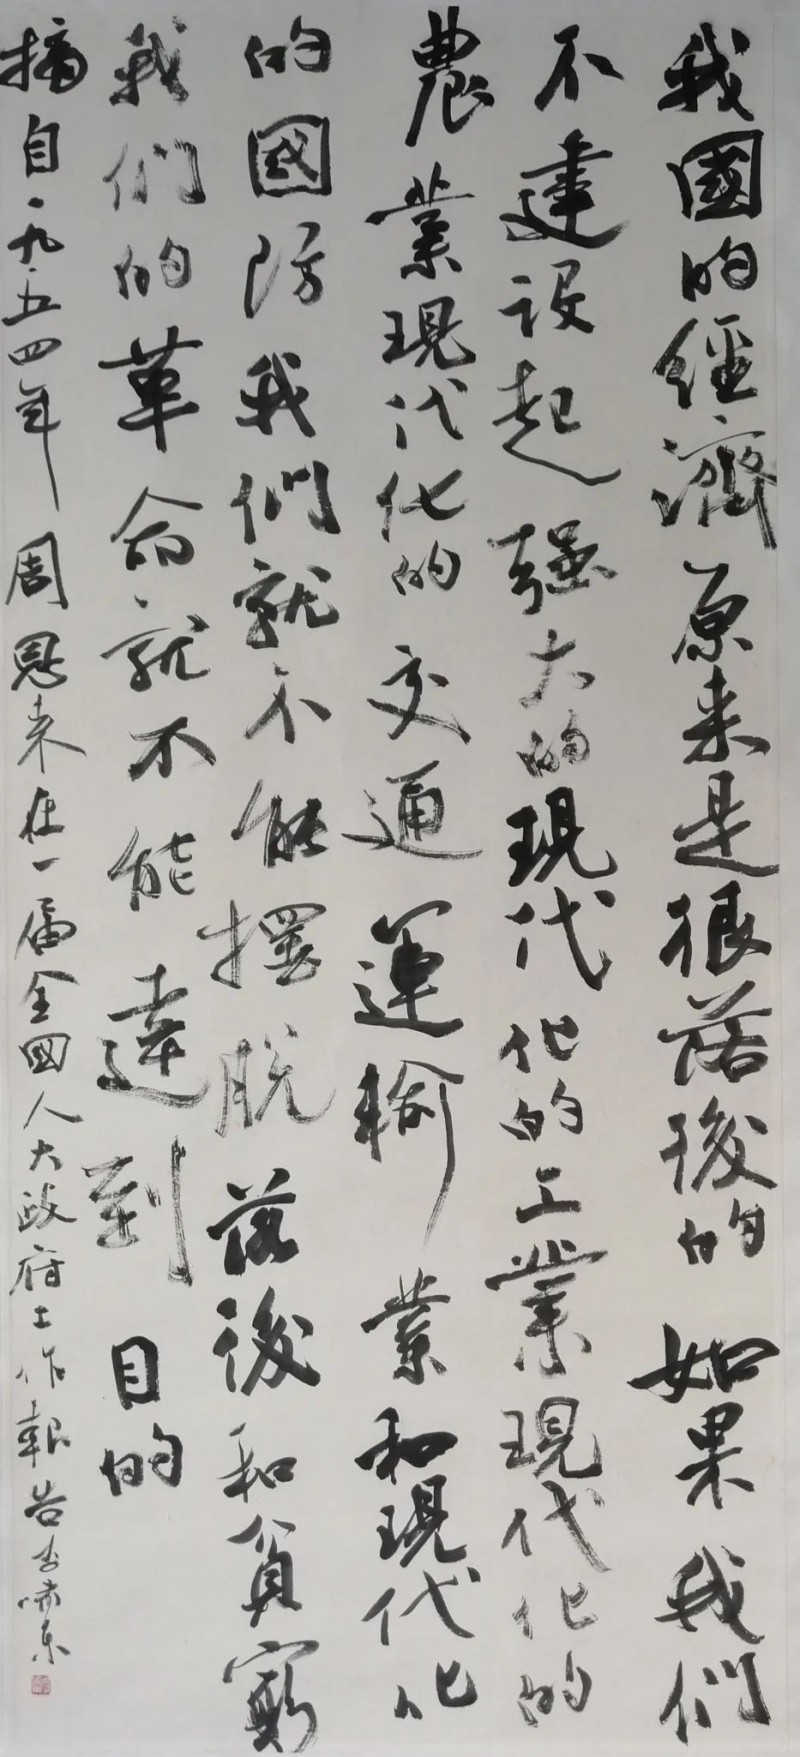 我國的經濟原来是很落後的如果我们
不建设起强大的现代化的工業现代化的
農業现代化的交通運輸業和现代化
的國防我們就不能擺脱落後和貧窮
我們的革命就不能達到目的
摘自一九五四年周恩来在一届全國人大政府工作報告